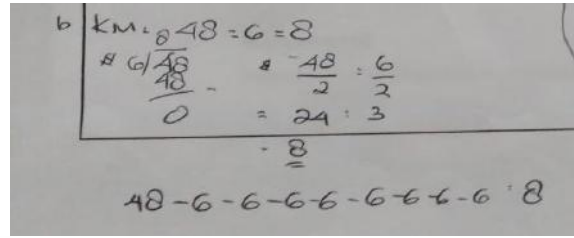 b KM: 48 : 6 = 8
8
6/48 -48/2 : 6/2
48 -
0 = 24 : 3
= 8
48 - 6 - 6 - 6 - 6 - 6 - 6 - 6 - 6 : 8